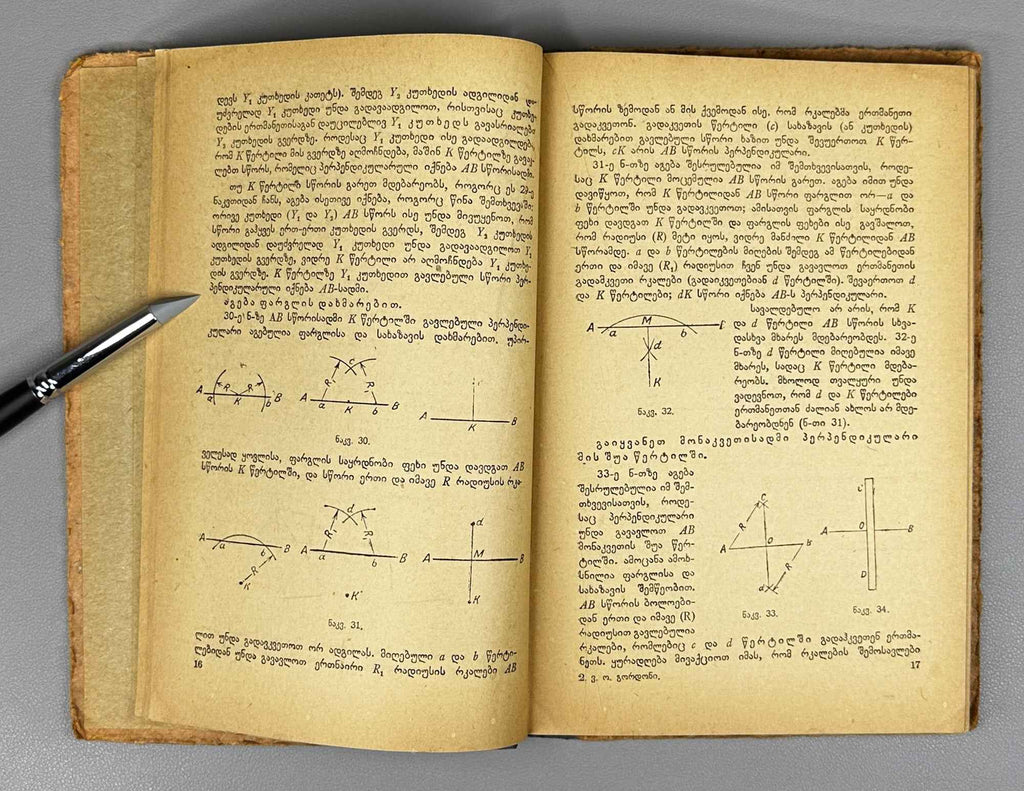 დევს Y₁ კუთხედის კათეტს). შემდეგ Y₂ კუთხედის ადგილიდან და-
უძვრელად Y₁ კუთხედი უნდა გადავაადგილოთ, რისთვისაც კუთხე-
დების ერთმანეთისაგან დაუცილებლივ Y₁ კუთხედს გავასრიალებთ
Y₂ კუთხედის გვერდზე. როდესაც Y₁ კუთხედი ისე გადაადგილდება,
რომ K წერტილი მის გვერდზე აღმოჩნდება, მაშინ K წერტილზე გავავ-
ლებთ სწორს, რომელიც პერპენდიკულარული იქნება AB სწორისადმი.
თუ K წერტილი სწორის გარეთ მდებარეობს, როგორც ეს 29-ე
ნაკვთიდან ჩანს, აგება ისეთივე იქნება, როგორც წინა შემთხვევაში:
ორივე კუთხედი (Y₁ და Y₂) AB სწორს ისე უნდა მივუყენოთ, რომ
სწორი გაჰყვეს ერთ-ერთი კუთხედის გვერდს, შემდეგ Y₂ კუთხედის
ადგილიდან დაუძვრელად Y₁ კუთხედი უნდა გადავაადგილოთ Y₂
კუთხედის გვერდზე, ვიდრე K წერტილი არ აღმოჩნდება Y₁ კუთხე-
დის გვერზე. K წერტილზე Y₁ კუთხედით გავლებული სწორი პერ-
პენდიკულარული იქნება AB-სადმი.
აგება ფარგლის დახმარებით.
30-ე ნ-ზე AB სწორისადმი K წერტილში გავლებული პერპენდი-
კულარი აგებულია ფარგლისა და სახაზავის დახმარებით. უპირ-
A a R K R b B
A a R c R b K B
A K B
ნაკვ. 30.
ველესად ყოვლისა, ფარგლის საყრდნობი ფეხი უნდა დავდგათ AB
სწორის K წერტილში, და სწორი ერთი და იმავე R რადიუსის რკა-
A a b B R K
A a R d R b B K
A d M B K
ნაკვ. 31.
ლით უნდა გადავკვეთოთ ორ ადგილას. მიღებული a და b წერტი-
ლებიდან უნდა გავავლოთ ერთნაირი R₁ რადიუსის რკალები AB
16
სწორის ზემოდან ან მის ქვემოდან ისე, რომ რკალებმა ერთმანეთი
გადაკვეთონ. გადაკვეთის წერტილი (c) სახაზავის (ან კუთხედის)
დახმარებით გავლებულ სწორი ხაზით უნდა შევუერთოთ K წერ-
ტილს, cK არის AB სწორის პერპენდიკულარი.
31-ე ნ-თზე აგება შესრულებულია იმ შემთხვევისათვის, როდე-
საც K წერტილი მოცემულია AB სწორის გარეთ. აგება იმით უნდა
დავიწყოთ, რომ K წერტილიდან AB სწორი ფარგლით ორ—a და
b წერტილში უნდა გადავკვეთოთ; ამისათვის ფარგლის საყრდნობი
ფეხი დავდგათ K წერტილში და ფარგლის ფეხები ისე გავშალოთ,
რომ რადიუსი (R) მეტი იყოს, ვიდრე მანძილი K წერტილიდან AB
სწორამდე. a და b წერტილების მიღების შემდეგ ამ წერტილებიდან
ერთი და იმავე (R₁) რადიუსით ჩვენ უნდა გავავლოთ ერთმანეთის
გადამკვეთი რკალები (გადაიკვეთებიან d წერტილში). შევაერთოთ d
და K წერტილები; dK სწორი იქნება AB-ს პერპენდიკულარი.
სავალდებულო არ არის, რომ K
და d წერტილი AB სწორის სხვა-
დასხვა მხარეს მდებარეობდეს. 32-ე
ნ-თზე d წერტილი მიღებულია იმავე
მხარეს, სადაც K წერტილი მდება-
რეობს. მხოლოდ თვალყური უნდა
ვადევნოთ, რომ d და K წერტილები
ერთმანეთთან ძალიან ახლოს არ მდე-
ბარეობდნენ (ნ-თი 31).
A a M b d K
ნაკვ. 32.
გაიყვანეთ მონაკვეთისადმი პერპენდიკულარი
მის შუა წერტილში.
33-ე ნ-თზე აგება
შესრულებულია იმ შემ-
თხვევისათვის, როდე-
საც პერპენდიკულარი
უნდა გავავლოთ AB
მონაკვეთის შუა წერ-
ტილში. ამოცანა ამოხ-
სნილია ფარგლისა და
სახაზავის შემწეობით.
AB სწორის ბოლოები-
დან ერთი და იმავე (R)
რადიუსით გავლებულია
რკალები, რომლებიც c და d წერტილში გადაჰკვეთენ ერთმა-
ნეთს. ყურადღება მივაქციოთ იმას, რომ რკალების შემოსავლები
C R A O B R d
ნაკვ. 33.
C A O B D
ნაკვ. 34.
17
2. ვ. ო. გორდონი.